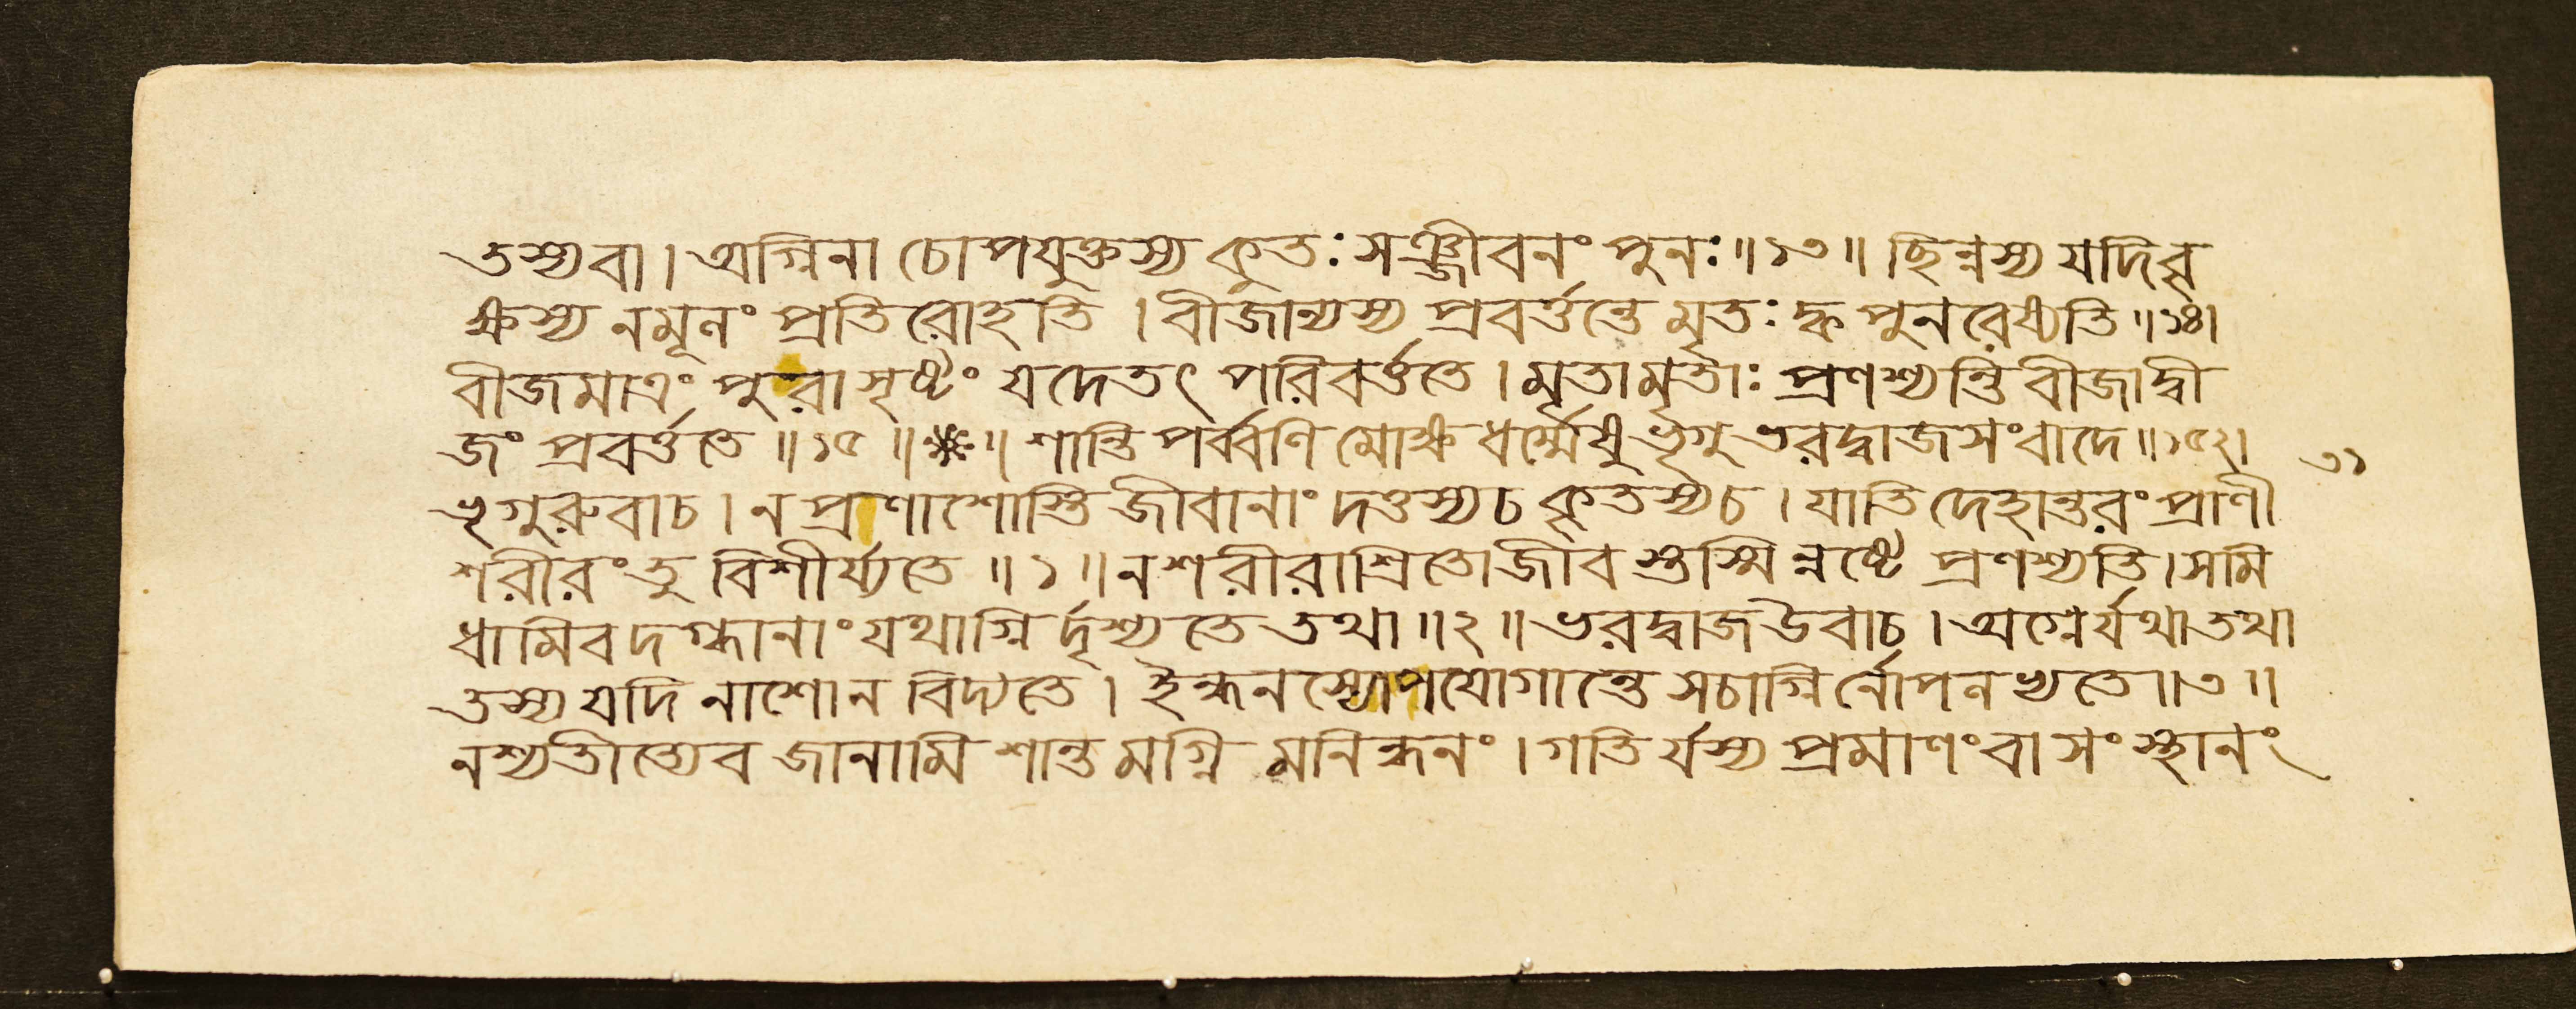 তস্যবা। অগ্নিনা চোপযুক্তস্য কুতঃ সঞ্জীবনং পুনঃ॥১৩॥ ছিন্নস্য যদিবৃ
ক্ষস্য নমূনং প্রতিরোহতি। বীজান্যস্য প্রবর্ত্তন্তে মৃতঃ ক্ব পুনরেষ্যতি॥১৪।
বীজমাত্রং পুরাসৃষ্টং যদেতৎ পরিবর্ত্ততে। মৃতামৃতাঃ প্রণশ্যন্তি বীজাদ্বী
জং প্রবর্ত্ততে॥১৫॥ঃ॥ শান্তিপর্ব্বণি মোক্ষধর্ম্মেষু ভৃগুভরদ্বাজসংবাদে॥১৫২। ৩১
ভৃগুরুবাচ। ন প্রণাশোস্তি জীবানাং দত্তস্যচ কৃতস্যচ। যাতি দেহান্তরং প্রাণী
শরীরংতু বিশীর্য্যতে॥১॥ নশরীরাশ্রিতোজীবস্তস্মিন্নষ্টে প্রণশ্যতি। সমি
ধামিবদগ্ধানাং যথাগ্নির্দৃশ্যতে তথা॥২॥ ভরদ্বাজউবাচ। অগ্নের্যথাতথা
তস্য যদি নাশোন বিদ্যতে। ইন্ধনস্যোপযোগান্তে সচাগ্নির্নোপলভ্যতে॥৩॥
নশ্যতীত্যেব জানামি শান্তমগ্নি মনিন্ধনং। গতির্যস্য প্রমাণংবা সংস্থানং